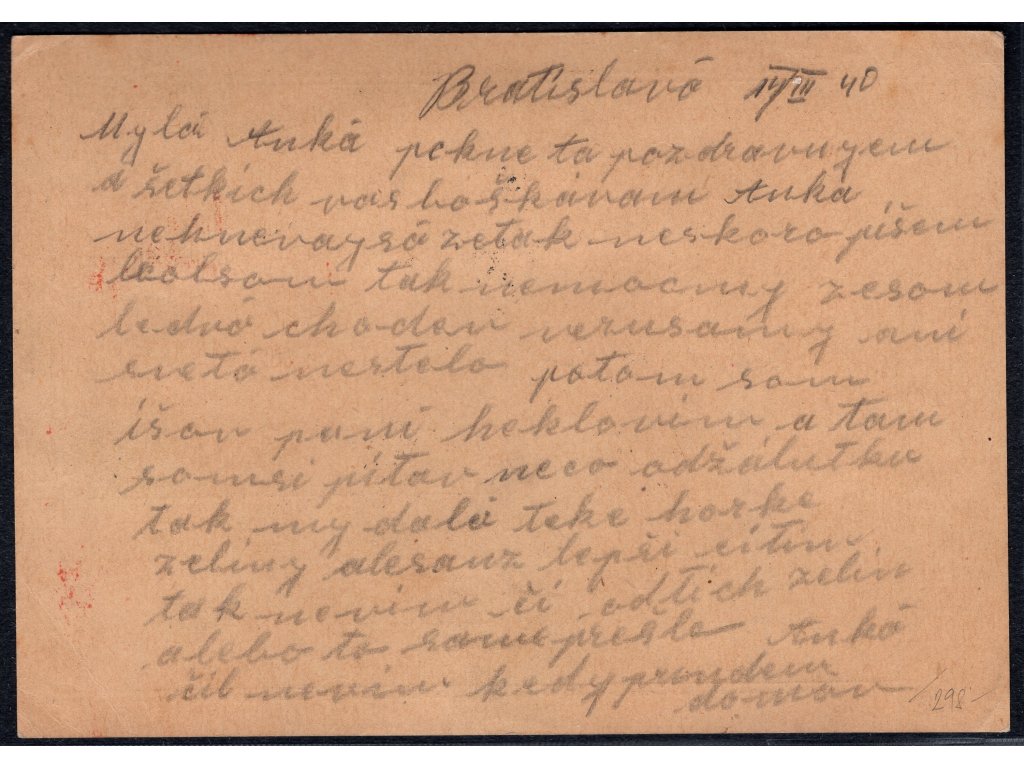 Bratislavá 14/III 40
Mylá Anká pekne ta pozdravuyem
a žetkich vas boškávam Anká
nehnevaysá zetak neskoro pišem
bolsom tak nemocny zesom
ledvá choden nezusamy ani
svetá nestelo potom som
išov pani heklovim a tam
somsi pitav neco odžálutku
tak my dalá teke horke
zeliny alesauz lepši citim
tak nevim či odtich zelin
alebo to samepreslo Anká
čil nevim kedy prindem
domov
298-